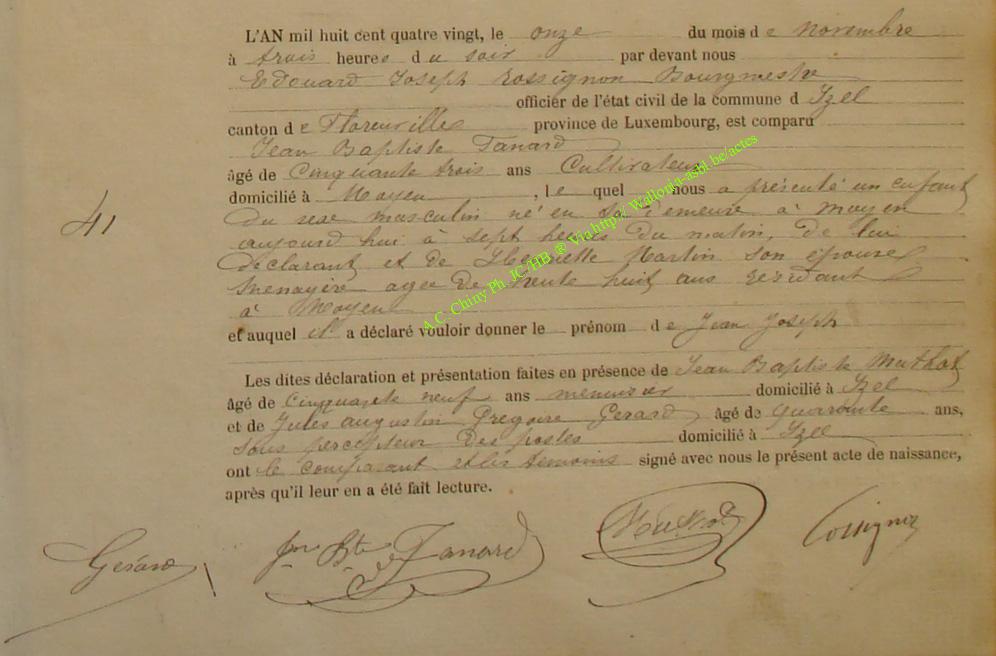 L'AN mil huit cent quatre vingt, le onze du mois d e Novembre
à trois heures d u soir par devant nous
Edouard Joseph Rossignon Bourgmestre
officier de l'état civil de la commune d Izel
canton d e Florenville province de Luxembourg, est comparu
Jean Baptiste Tanard
âgé de Cinquante trois ans Cultivateur
domicilié à Moyen , le quel nous a présenté un enfant
41
du sexe masculin né en sa demeure à Moyen
aujourd hui à sept heures du matin, de lui
declarant et de Henriette Martin son épouse
menagère agée de trente huit ans residant
à Moyen
et auquel il a déclaré vouloir donner le prénom d e Jean Joseph
Les dites déclaration et présentation faites en présence de Jean Baptiste Muthot
âgé de Cinquante neuf ans menuisier domicilié à Izel
et de Jules augustin Gregoire Gerard âgé de quarante ans,
sous percepteur des postes domicilié à Izel
ont le comparant et les temoins signé avec nous le présent acte de naissance,
après qu'il leur en a été fait lecture.
Gérard Jn Bte Tanard Muthot Rossignon
A.C. Chiny Ph. JC/HB ® Via http:// Wallonia-asbl.be/actes